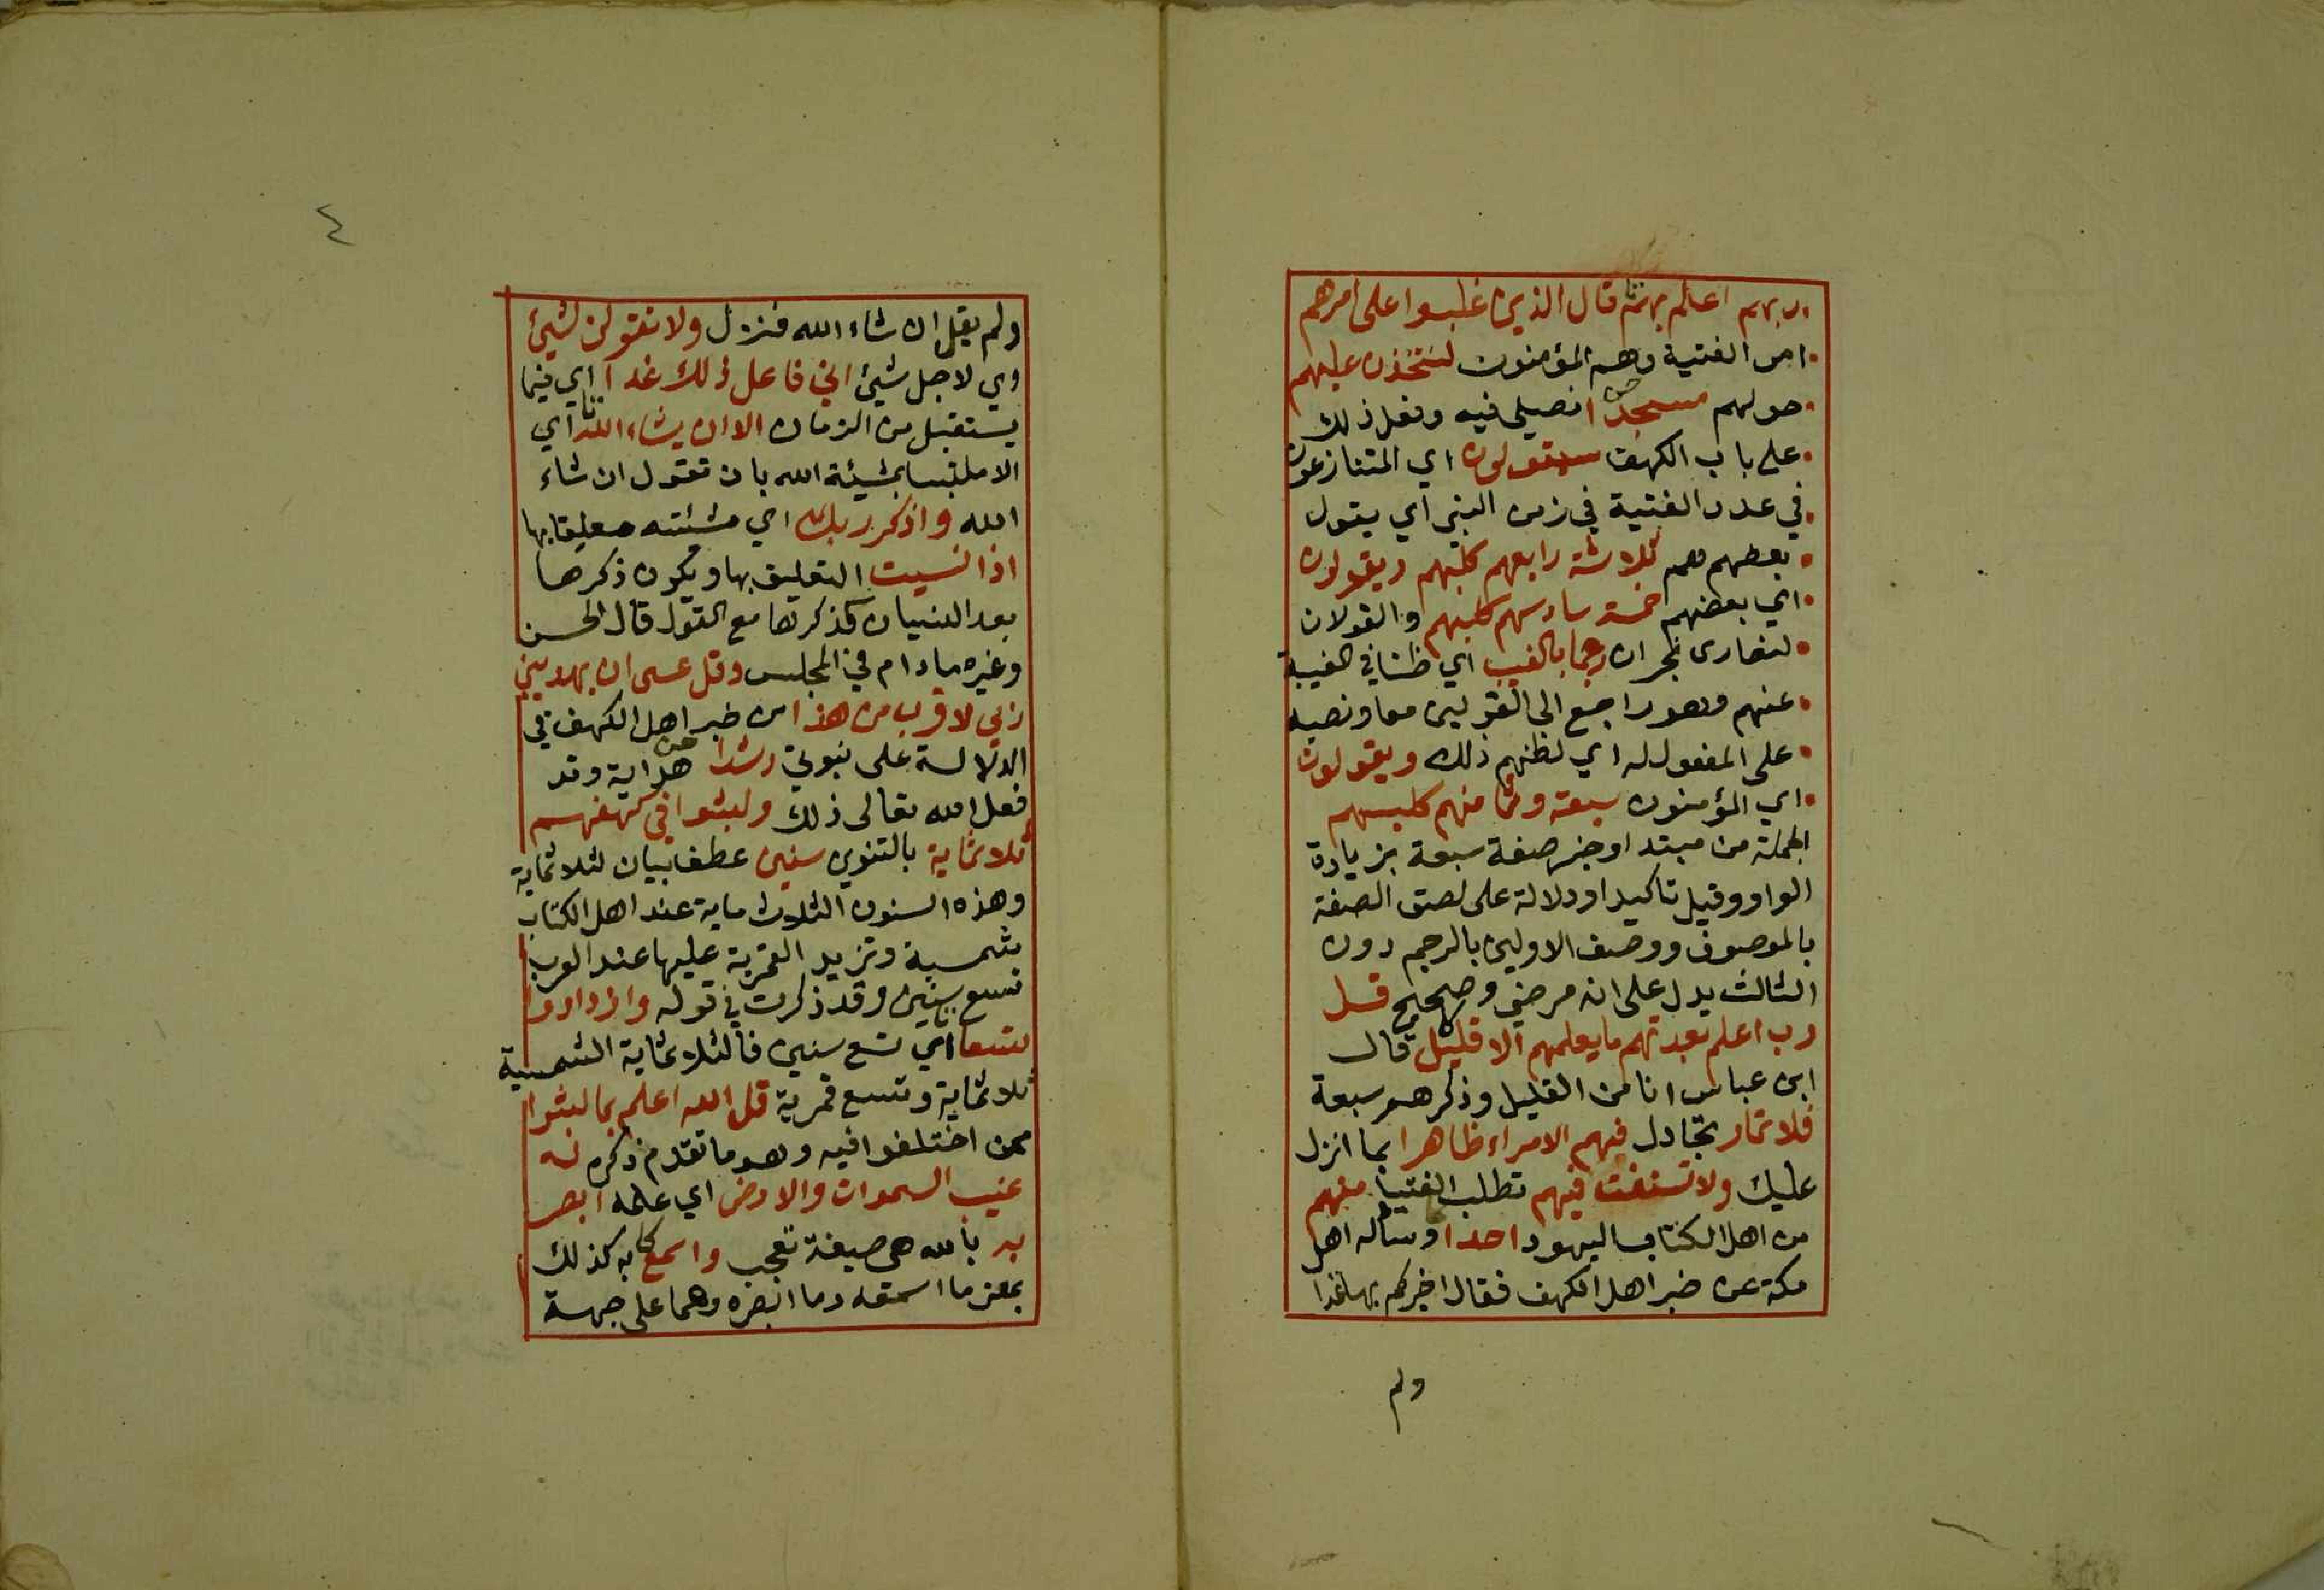 ربهم اعلم بهم قال الذين غلبوا على امرهم
امر الفتية وهم المؤمنون لنتخذن عليهم
حولهم مسجدا نصلي فيه وفعل ذلك
على باب الكهف سيقولون اي المتنازعون
في عدد الفتية في زمن النبي اي يقول
بعضهم هم ثلاثة رابعهم كلبهم ويقولون
اي بعضهم خمسة سادسهم كلبهم والقولان
لنصارى نجران رجما بالغيب اي ظنا في الغيبة
عنهم وهو راجع الى القولين معا ونصبه
على المفعول له اي لظنهم ذلك ويقولون
اي المؤمنون سبعة وثامنهم كلبهم
الجملة من مبتدا وخبر صفة سبعة بزيادة
الواو وقيل تاكيد او دلالة على لصق الصفة
بالموصوف ووصف الاولين بالرجم دون
الثالث يدل على انه مرضي وصحيح قل
رب اعلم بعدتهم ما يعلمهم الا قليل قال
ابن عباس انا من القليل وذكرهم سبعة
فلا تمار تجادل فيهم الا مراء ظاهرا بما انزل
عليك ولا تستفت فيهم تطلب الفتيا منهم
من اهل الكتاب اليهود احدا وساله اهل
مكة عن خبر اهل الكهف فقال اخبركم بها غدا
ولم
٤
ولم يقل ان شاء الله فنزل ولا تقولن لشيئ
اي لاجل شيئ اني فاعل ذلك غدا اي فيما
يستقبل من الزمان الا ان يشاء الله اي
الا ملتبسا بمشيئة الله بان تقول ان شاء
الله واذكر ربك اي مشئته معليقا بها
اذا نسيت التعليق بها ويكون ذكرها
بعد النسيان كذكرها مع القول قال الحسن
وغيره مادام في المجلس وقل عسى ان يهديني
ربي لاقرب من هذا من خبر اهل الكهف في
الدلالة على نبوتي رشدا هداية وقد
فعل الله تعالى ذلك ولبثوا في كهفهم
ثلاثماية بالتنوين سنين عطف بيان لثلاثماية
وهذه السنون الثلاث ماية عند اهل الكتاب
شمسية وتزيد القمرية عليها عند العرب
تسع سنين وقد ذكرت في قوله وازدادوا
تسعا اي تسع سنين فالثلاثماية الشمسية
ثلاثماية وتسع قمرية قل الله اعلم بما لبثوا
ممن اختلفوا فيه وهو ما تقدم ذكره له
غيب السموات والارض اي علمه ابصر
به بالله هي صيغة تعجب واسمع به كذلك
بمعنى ما اسمعه وما ابصره وهما على جهة